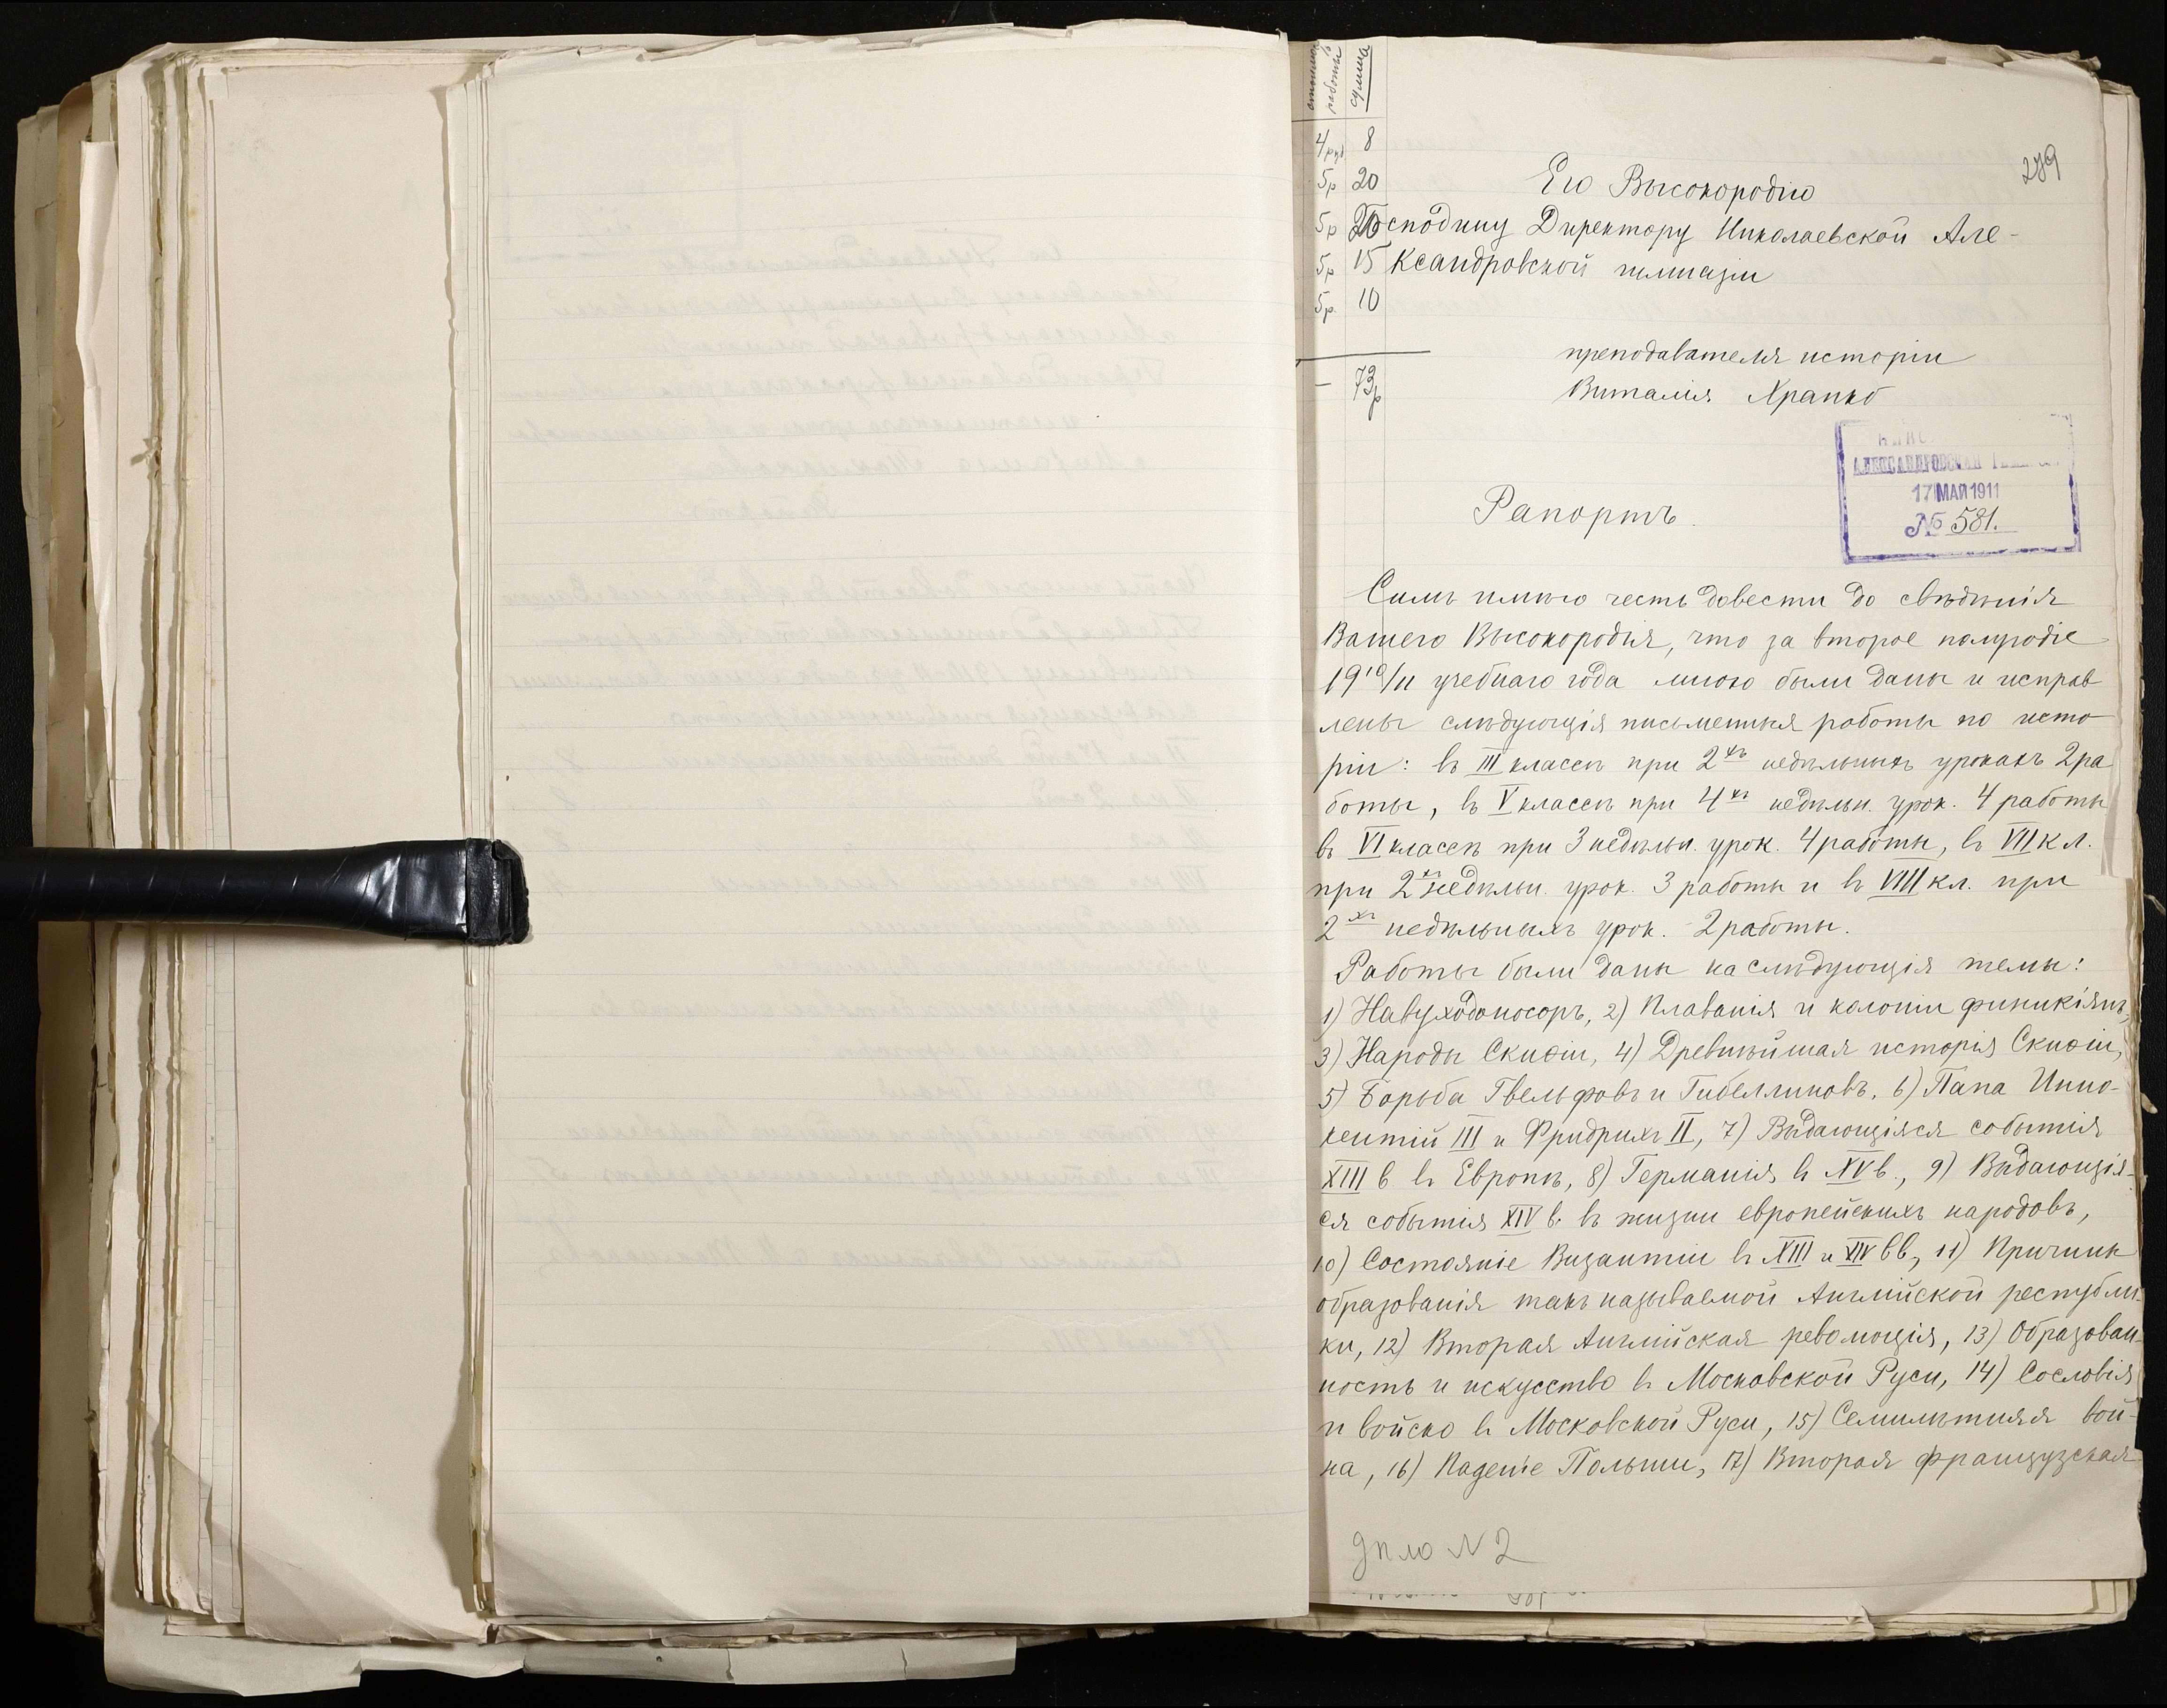 работы сумма
4 руб 8
5р 20
5р 20
5р 15
5р. 10
— 73р
279
Его Высокородію
Господину Директору Николаевской Але-
ксандровской гимназіи
преподавателя исторіи
Виталія Храпко
АЛЕКСАНДРОВСКАЯ
17 МАЯ 1911
№ 581.
Рапортъ.
Симъ имѣю честь довести до свѣдѣнія
Вашего Высокородія, что за второе полугодіе
1910/11 учебнаго года мною были даны и исправ
лены слѣдующія письменныя работы по исто
ріи: въ III классѣ при 2хъ недѣльныхъ урокахъ 2 ра
боты, въ V классѣ при 4хъ недѣльн. урок. 4 работы
въ VI классѣ при 3 недѣльн. урок. 4 работы, въ VII кл.
при 2хъ недѣльн. урок. 3 работы и въ VIII кл. при
2хъ недѣльныхъ урок. 2 работы.
Работы были даны на слѣдующія темы:
1) Навуходоносоръ, 2) Плаванія и колоніи финикіянъ,
3) Народы Скиѳіи, 4) Древнѣйшая исторія Скиѳіи,
5) Борьба Гвельфовъ и Гибеллиновъ, 6) Папа Инно-
кентій III и Фридрихъ II, 7) Выдающіяся событія
XIII в въ Европѣ, 8) Германія въ XV в., 9) Выдающія-
ся событія XIV в. въ жизни европейскихъ народовъ,
10) Состояніе Византіи въ XIII и XIV вв., 11) Причины
образованія такъ называемой Англійской республи-
ки, 12) Вторая Англійская революція, 13) Образован-
ность и искусство въ Московской Руси, 14) Сословія
и войско въ Московской Руси, 15) Семилѣтняя вой-
на, 16) Паденіе Польши, 17) Вторая французская
дѣло N 2